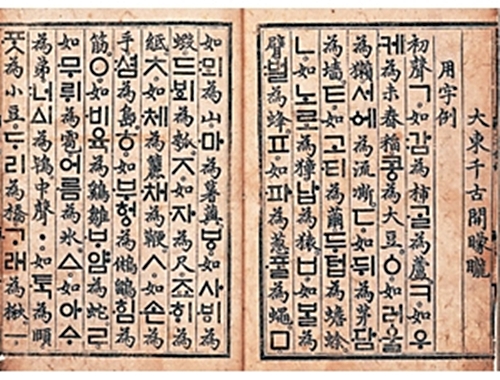 大東千古開曚曨
用字例
初聲ㄱ。如감為柿。ᄀᆞᆯ為蘆。ㅋ。如우
케為未舂稻。콩為大豆。ㆁ。如러울
為獺。서에為流凘。ㄷ。如뒤為茅。담
為墻。ㅌ。如고티為繭。두텁為蟾蜍。
ㄴ。如노로為獐。납為猿。ㅂ。如ᄇᆞᆯ為
臂。벌為蜂。ㅍ。如파為葱。ᄑᆞᆯ為蠅。ㅁ。
如뫼為山。마為薯藇。ㅸ。如사ᄫᅵ為
蝦。드ᄫᅴ為瓠。ㅈ。如자為尺。죠ᄒᆡ為
紙。ㅊ。如체為籭。채為鞭。ㅅ。如손為
手。셤為島。ㅎ。如부헝為鵂鶹。힘為
筋。ㅇ。如비육為鷄雛。ᄇᆞ얌為蛇。ㄹ。
如무뤼為雹。어름為氷。ㅿ。如아ᅀᆞ
為弟。너ᅀᅵ為鴇。中聲ㆍ。如ᄐᆞᆨ為頤。
ᄑᆞᆺ為小豆。ᄃᆞ리為橋。ᄀᆞ래為楸。ㅡ。